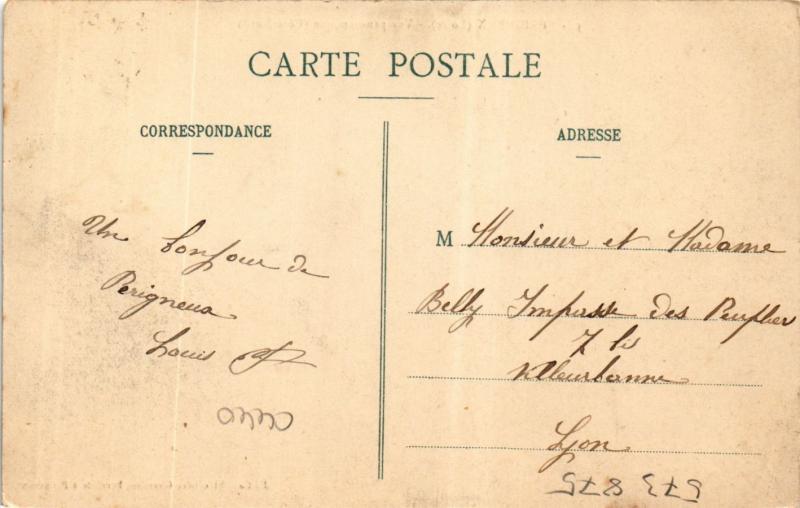 CARTE POSTALE
CORRESPONDANCE
Un bonjour de
Perigneux
Louis
ADRESSE
M Monsieur et Madame
Belly Impasse des Peuplier
7 bis
Villeurbanne
Lyon
573 875